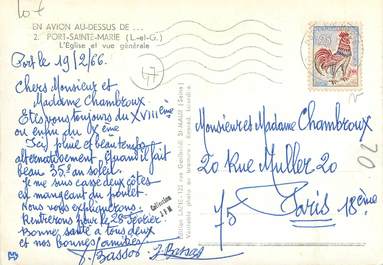 10 €
EN AVION AU-DESSUS DE ...
2. PORT-SAINTE-MARIE (L.-et-G.)
L'Église et vue générale
Port le 19/2/66.
47
Chers Monsieur et
Madame Chambroux.
Etes vous toujours du XVIIIème
ou enfin du IXème
Ici, pluie et beau temps
alternativement. Quand il fait
beau 35° au soleil.
Je me suis cassé deux côtes
en mangeant du poulet.
Nous vous expliquerons.
Rentrerons pour le 28 Février.
Bonne santé à tous deux
et nos bonnes amitiés
J. Bassot
Collection
0,25
Monsieur et Madame Chambroux
20 Rue Muller 20
75 Paris 18ème
20